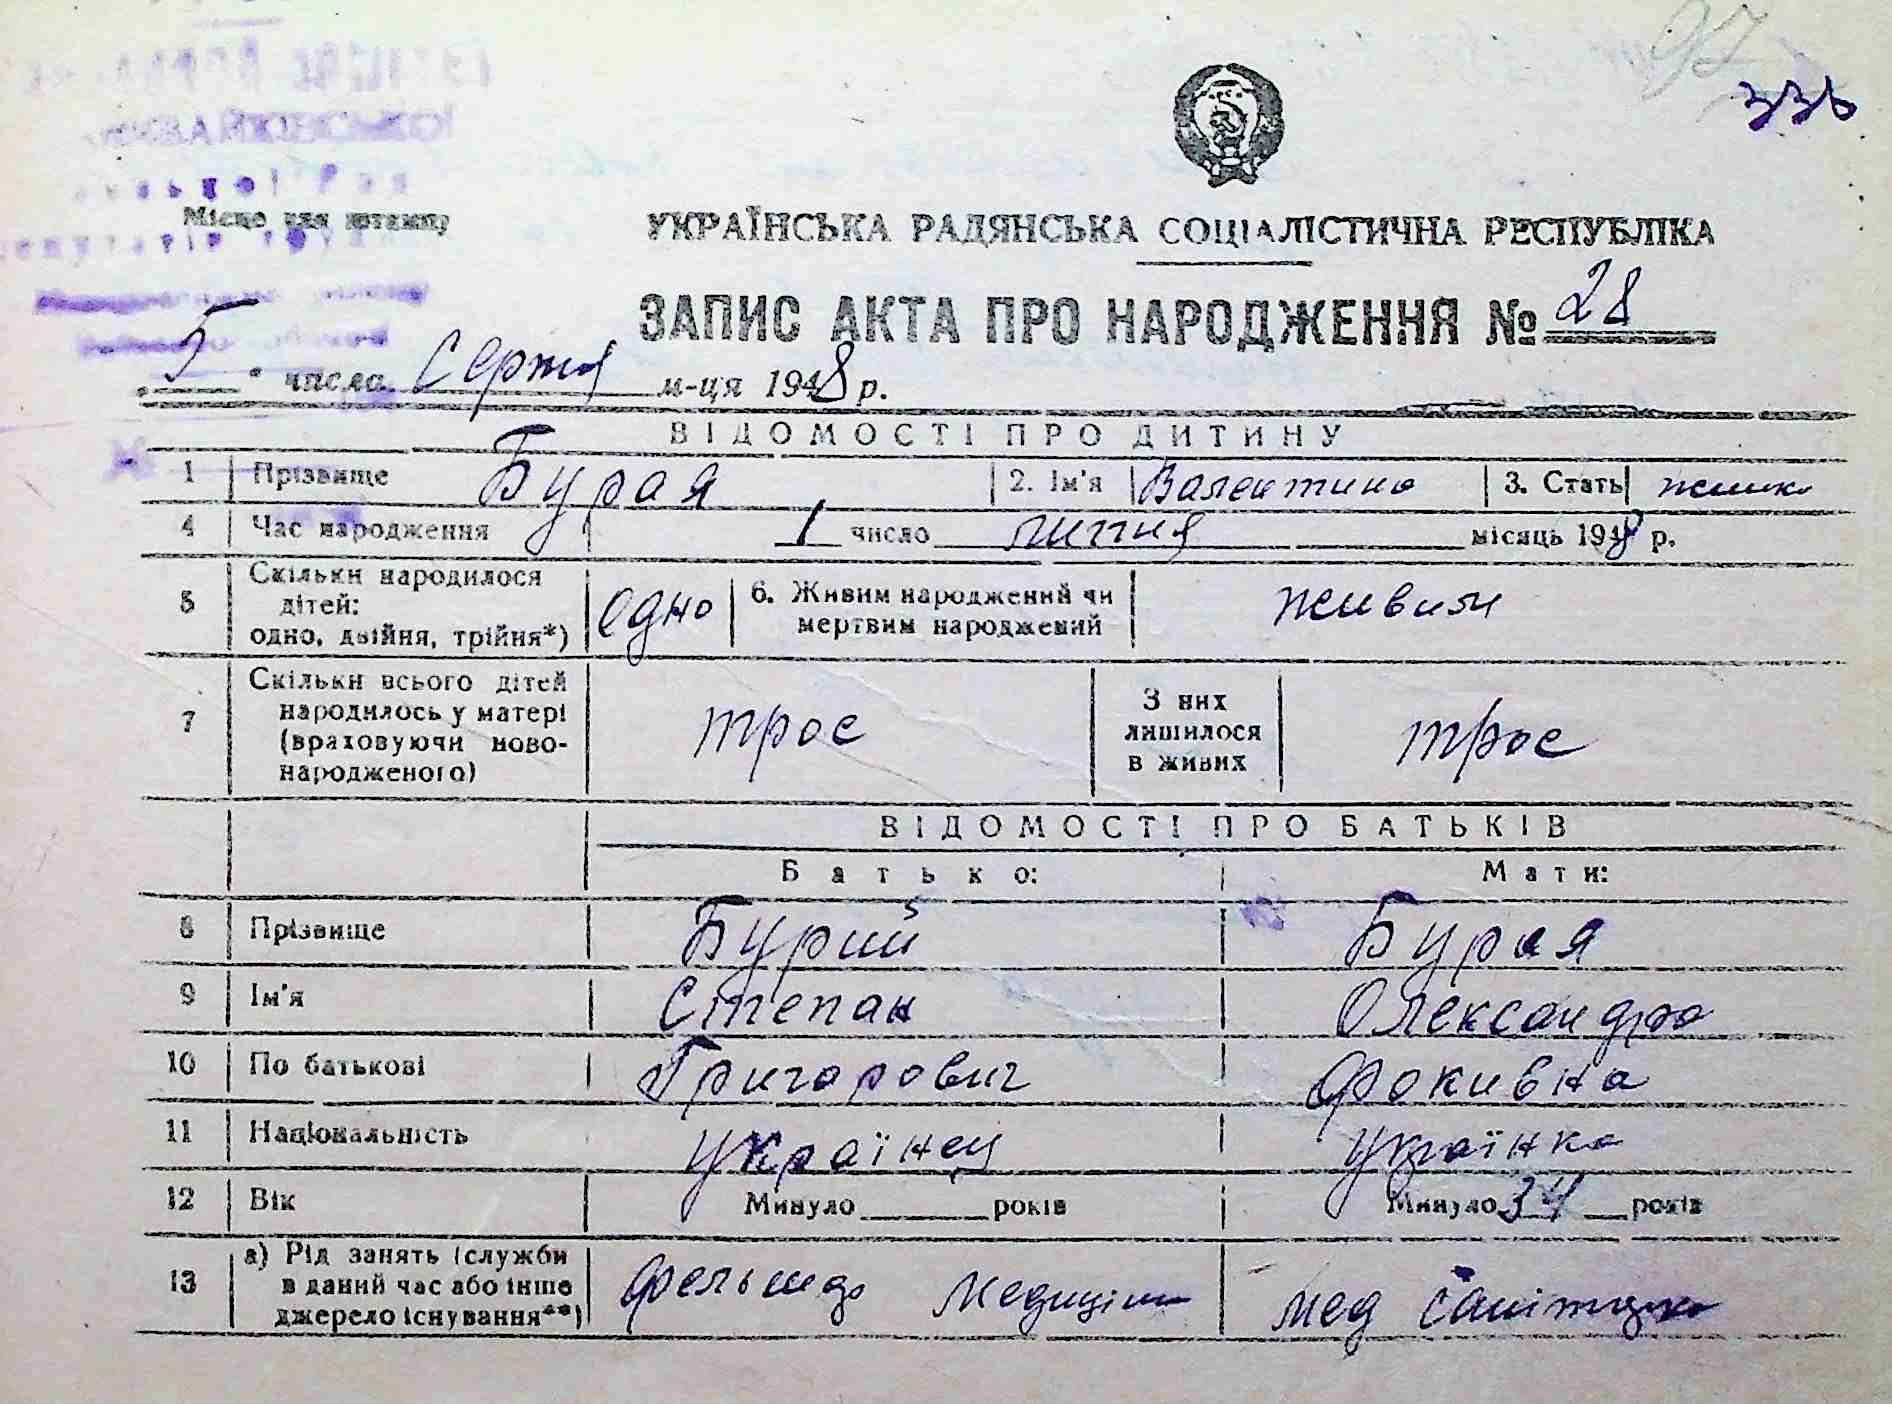 97
336
Місце для штампу
УКРАЇНСЬКА РАДЯНСЬКА СОЦІАЛІСТИЧНА РЕСПУБЛІКА
ЗАПИС АКТА ПРО НАРОДЖЕННЯ № 28
„5" числа Серпня м-ця 1948 р.
ВІДОМОСТІ ПРО ДИТИНУ
1 Прізвище Бурая 2. Ім'я Валентина 3. Стать
4 Час народження 1 число липня місяць 1948 р.
5 Скільки народилося дітей: одно, двійня, трійня*) одно 6. Живим народжений чи мертвим народжений живим
7 Скільки всього дітей народилось у матері (враховуючи ново-народженого) троє З них лишилося в живих троє
ВІДОМОСТІ ПРО БАТЬКІВ
Батько: Мати:
8 Прізвище Бурий Бурая
9 Ім'я Степан Олександра
10 По батькові Григорович Фокивна
11 Національність українец українка
12 Вік Минуло ____ років Минуло 34 років
13 а) Рід занять (служби в даний час або інше джерело існування**) мед